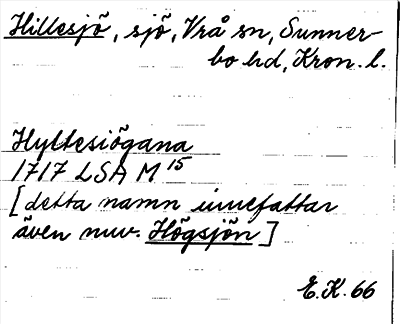 Hillesjö, sjö, Vrå sn, Sunner-
bo hd, Kron. l.
Hyltesiögana
1717 LSA M 15
[detta namn innefattar
även nuv. Högsjön]
E.K. 66